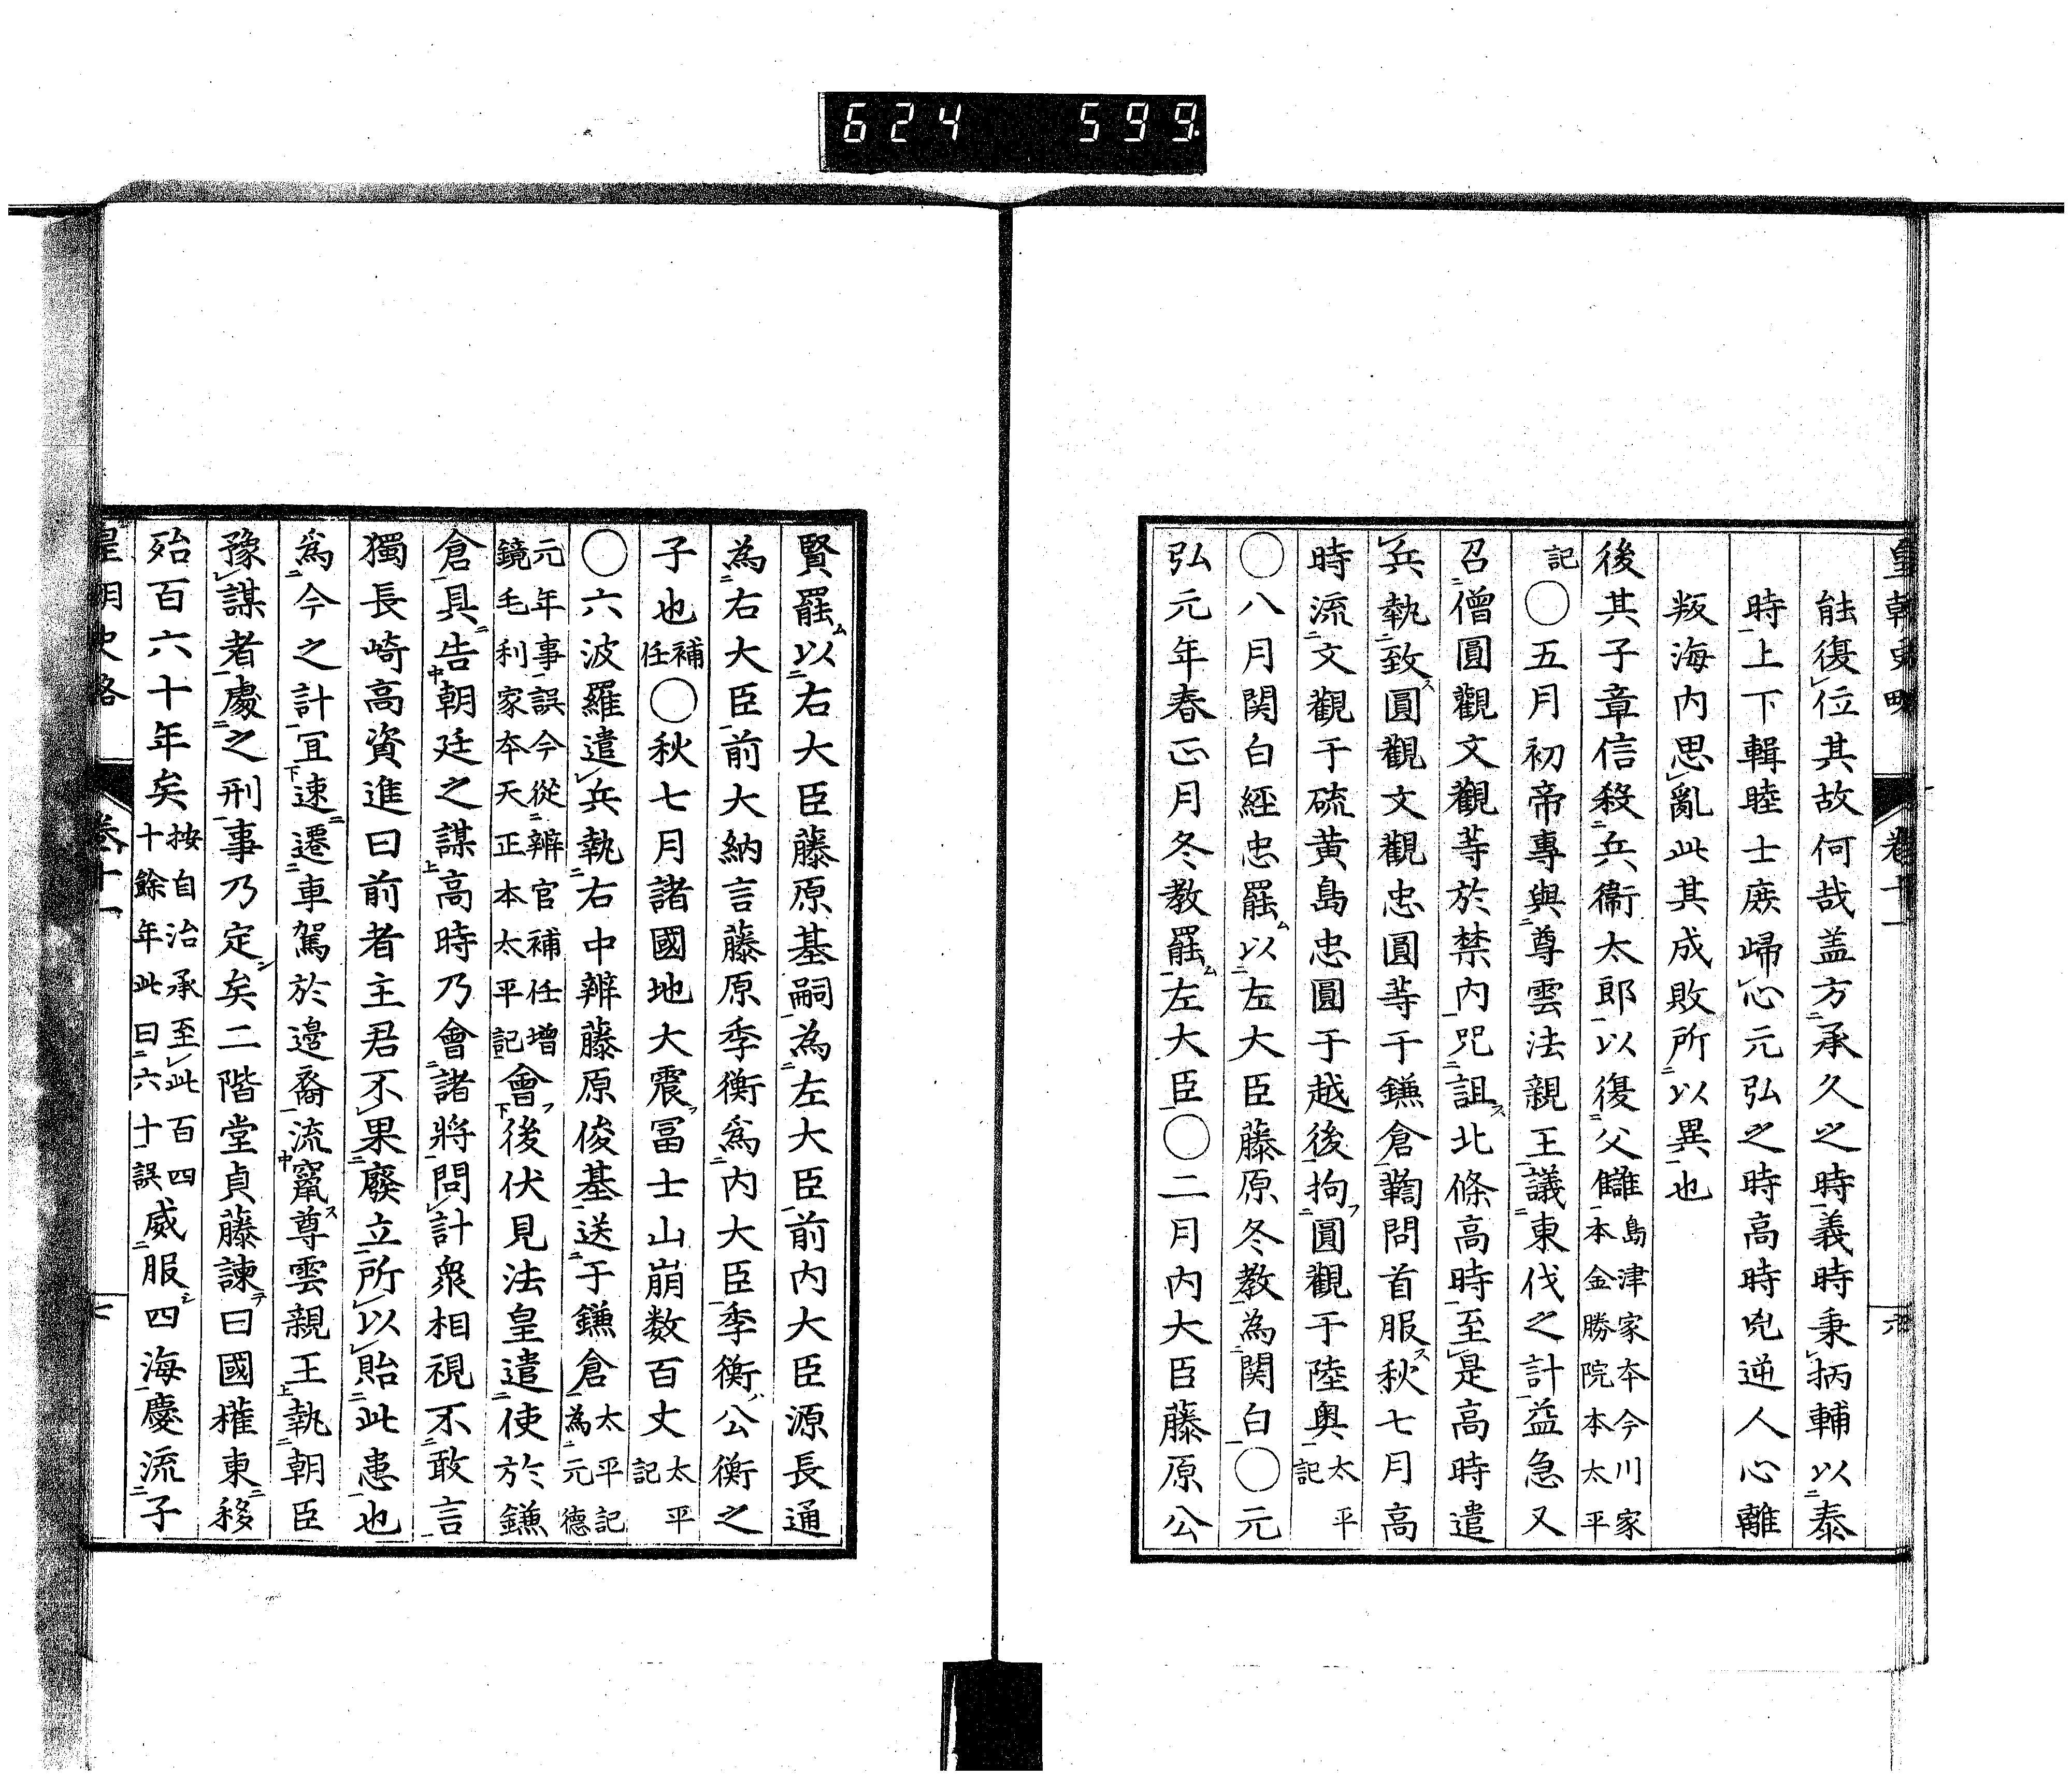 624 599
皇朝史略 卷十一 六
能復位其故何哉盖方承久之時義時秉柄輔以泰
時上下輯睦士庶歸心元弘之時高時兇逆人心離
叛海内思亂此其成敗所以異也
後其子章信殺兵衞太郎以復父讎島津家本今川家本金勝院本太平
記〇五月初帝專與尊雲法親王議東伐之計益急又
召僧圓觀文觀等於禁内咒詛北條高時至是高時遣
兵執致圓觀文觀忠圓等于鎌倉鞫問首服秋七月高
時流文觀于硫黄島忠圓于越後拘圓觀于陸奥太平記
〇八月関白經忠罷以左大臣藤原冬教為関白〇元
弘元年春正月冬教罷左大臣〇二月内大臣藤原公
賢罷以右大臣藤原基嗣為左大臣前内大臣源長通
為右大臣前大納言藤原季衡爲内大臣季衡公衡之
子也補任〇秋七月諸國地大震冨士山崩数百丈太平記
〇六波羅遣兵執右中辨藤原俊基送于鎌倉太平記為元德
元年事誤今從辨官補任增鏡毛利家本天正本太平記會後伏見法皇遣使於鎌
倉具告朝廷之謀高時乃會諸將問計衆相視不敢言
獨長崎高資進曰前者主君不果廢立所以貽此患也
爲今之計宜速遷車駕於邉裔流竄尊雲親王執朝臣
豫謀者處之刑事乃定矣二階堂貞藤諫曰國權東移
殆百六十年矣按自治承至此百四十餘年此曰六十誤威服四海慶流子
皇朝史略 卷十一 七